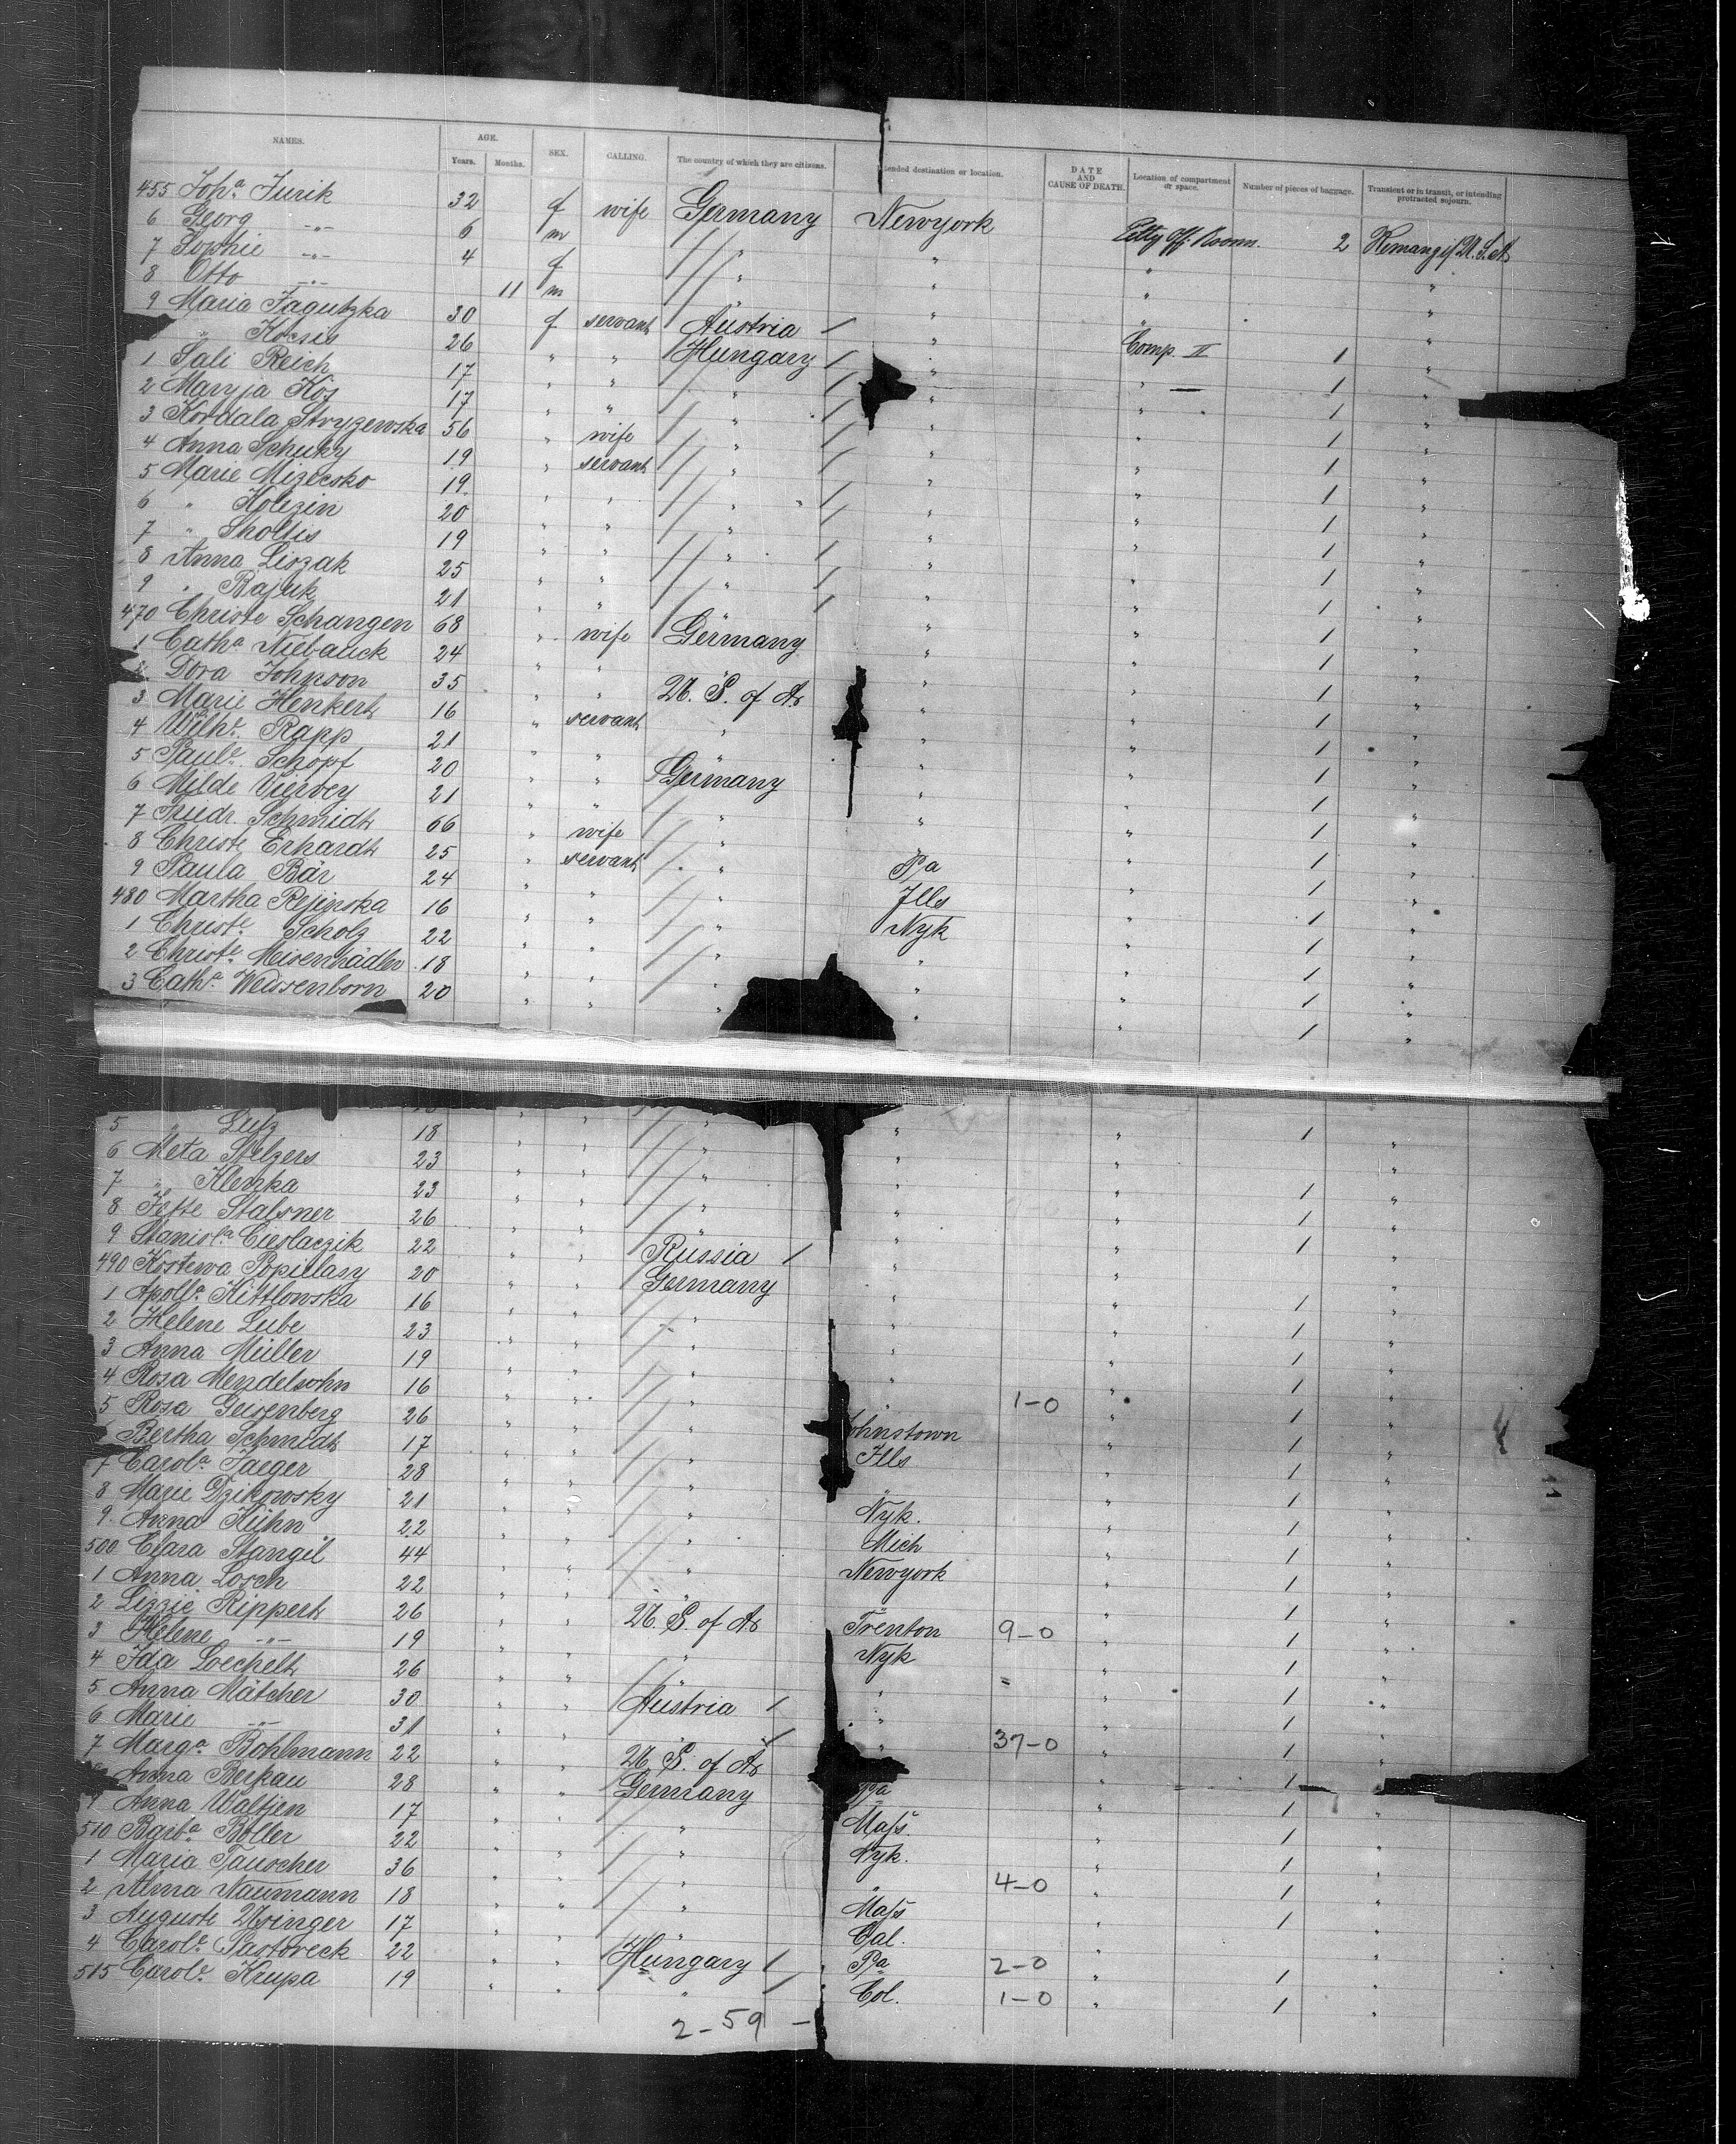 NAMES. AGE. Years. Months. SEX. CALLING. The country of which they are citizens. Intended destination or location. DATE AND CAUSE OF DEATH. Location of compartment or space. Number of pieces of baggage. Transient or in transit, or intending protracted sojourn.
455 Joha. Jurik 32 f wife Germany Newyork Petty Off. Rooms. 2
6 Georg -"- 6 m " "
7 Sophie -"- 4 f " " " "
8 Otto -"- 11 m " " "
9 Maria Jagutzka 30 f servant Austria / " " "
" Kocsis 26 " " Hungary / " Comp. II 1 "
1 Sali Reich 17 " " " / " " 1 "
2 Maryja Kos 17 " " " / " " 1 "
3 Kordala Stryzewska 56 " wife " / " " 1 "
4 Anna Schuky 19 " servant " / " " 1 "
5 Marie Mizecsko 19 " " " / " " 1 "
6 " Kolezin 20 " " " / " " 1 "
7 " Sholtis 19 " " " / " " 1 "
8 Anna Liszak 25 " " " / " " 1 "
9 " Bajuk 21 " " " / " " 1 "
470 Christe Schangen 68 " wife Germany " " 1 "
1 Catha. Niebauck 24 " " " " " 1 "
2 Dora Johnson 35 " " U. S. of A. " " 1 "
3 Marie Henkert 16 " servant " " " 1 "
4 Wilhe. Rapp 21 " " " " " 1 "
5 Paule. Schopf 20 " " Germany " " 1 "
6 Milde Viervey 21 " " " " " 1 "
7 Friedr. Schmidt 66 " wife " " " 1 "
8 Christe Erhardt 25 " servant " Pa " 1 "
9 Paula Bär 24 " " " Ills " 1 "
480 Martha Rejinska 16 " " " Nyk " 1 "
1 Christe. Scholz 22 " " " " " 1 "
2 Christe. Meisenhädler 18 " " " " " 1 "
3 Catha. Weissenborn 20 " " " " " 1 "
5 " Lutz 18 " " " " " 1 "
6 Meta Stelzers 23 " " " " " "
7 " Klenka 23 " " " " " 1 "
8 Jette Stalsner 26 " " " " " 1 "
9 Stanisla. Cieslaczik 22 " " Russia / " " 1 "
490 Kostewa Popiellasy 20 " " Germany " " "
1 Apolla. Kittlowska 16 " " " " " 1 "
2 Helene Lube 23 " " " " " 1 "
3 Anna Müller 19 " " " " " 1 "
4 Rosa Mendelsohn 16 " " " " " 1 "
5 Rosa Geisenberg 26 " " " " 1-0 " 1 "
Bertha Schmidt 17 " " " Johnstown " 1 "
7 Carola. Jaeger 28 " " " Ills " 1 "
8 Marie Dzikowsky 21 " " " " " 1 "
9 Anna Kühn 22 " " " Nyk. " 1 "
500 Clara Stangil 44 " " " Mich " 1 "
1 Anna Losch 22 " " " Newyork " 1 "
2 Lizzie Rippert 26 " " U. S. of A. " " 1 "
3 Helene -"- 19 " " " Trenton 9-0 " 1 "
4 Ida Loechelt 26 " " " Nyk " 1 "
5 Anna Mätcher 30 " " Austria / " " 1 "
6 Marie -"- 31 " " " / " " 1 "
7 Marga. Bohlmann 22 " " U. S. of A. " 37-0 " 1 "
Anna Berkau 28 " " Germany Pa " 1 "
9 Anna Waltjen 17 " " " Mass. " 1 "
510 Barba. Boller 22 " " " Nyk. " 1 "
1 Maria Tauscher 36 " " " " 4-0 " 1 "
2 Alma Naumann 18 " " " Mass " 1 "
3 Auguste Usinger 17 " " " Cal. " 1 "
4 Carole. Pastoreck 22 " " Hungary / Pa 2-0 " 1 "
515 Carole. Krupa 19 " " " / Col. 1-0 " 1 "
2-59 -